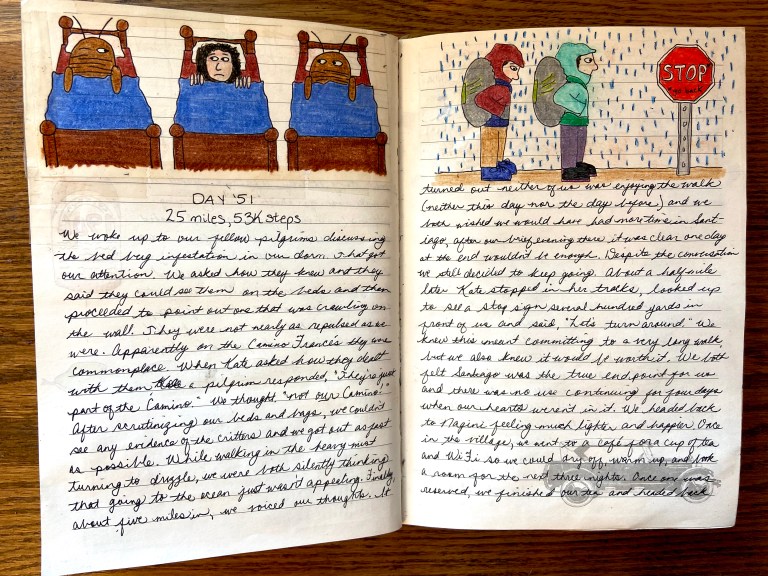 DAY 51
25 miles, 53K steps
We woke up to our fellow pilgrims discussing
the bed bug infestation in our dorm. That got
our attention. We asked how they knew and they
said they could see them on the beds and then
proceeded to point out one that was crawling on
the wall. They were not nearly as repulsed as we
were. Apparently on the Camino Francés they were
commonplace. When Kate asked how they dealt
with them a pilgrim responded, "They're just
part of the Camino." We thought "not our Camino."
After scrutinizing our beds and bags, we couldn't
see any evidence of the critters and we got out as fast
as possible. While walking in the heavy mist
turning to drizzle, we were both silently thinking
that going to the ocean just wasn't appealing. Finally,
about five miles in, we voiced our thoughts. It
STOP
turned out neither of us was enjoying the walk
(neither this day nor the day before) and we
both wished we would have had more time in Sant-
iago, after our brief evening there it was clear one day
at the end wouldn't be enough. Despite the conversation
we still decided to keep going. About a half mile
later Kate stopped in her tracks, looked up
to see a stop sign several hundred yards in
front of us and said, "Let's turn around." We
knew this meant committing to a very long walk,
but we also knew it would be worth it. We both
felt Santiago was the true end point for us
and there was no use continuing for four days
when our hearts weren't in it. We headed back
to Negreira feeling much lighter and happier. Once
in the village, we went to a café for a cup of tea
and WiFi so we could dry off, warm up, and book
a room for the next three nights. Once one was
reserved, we finished our tea and headed back